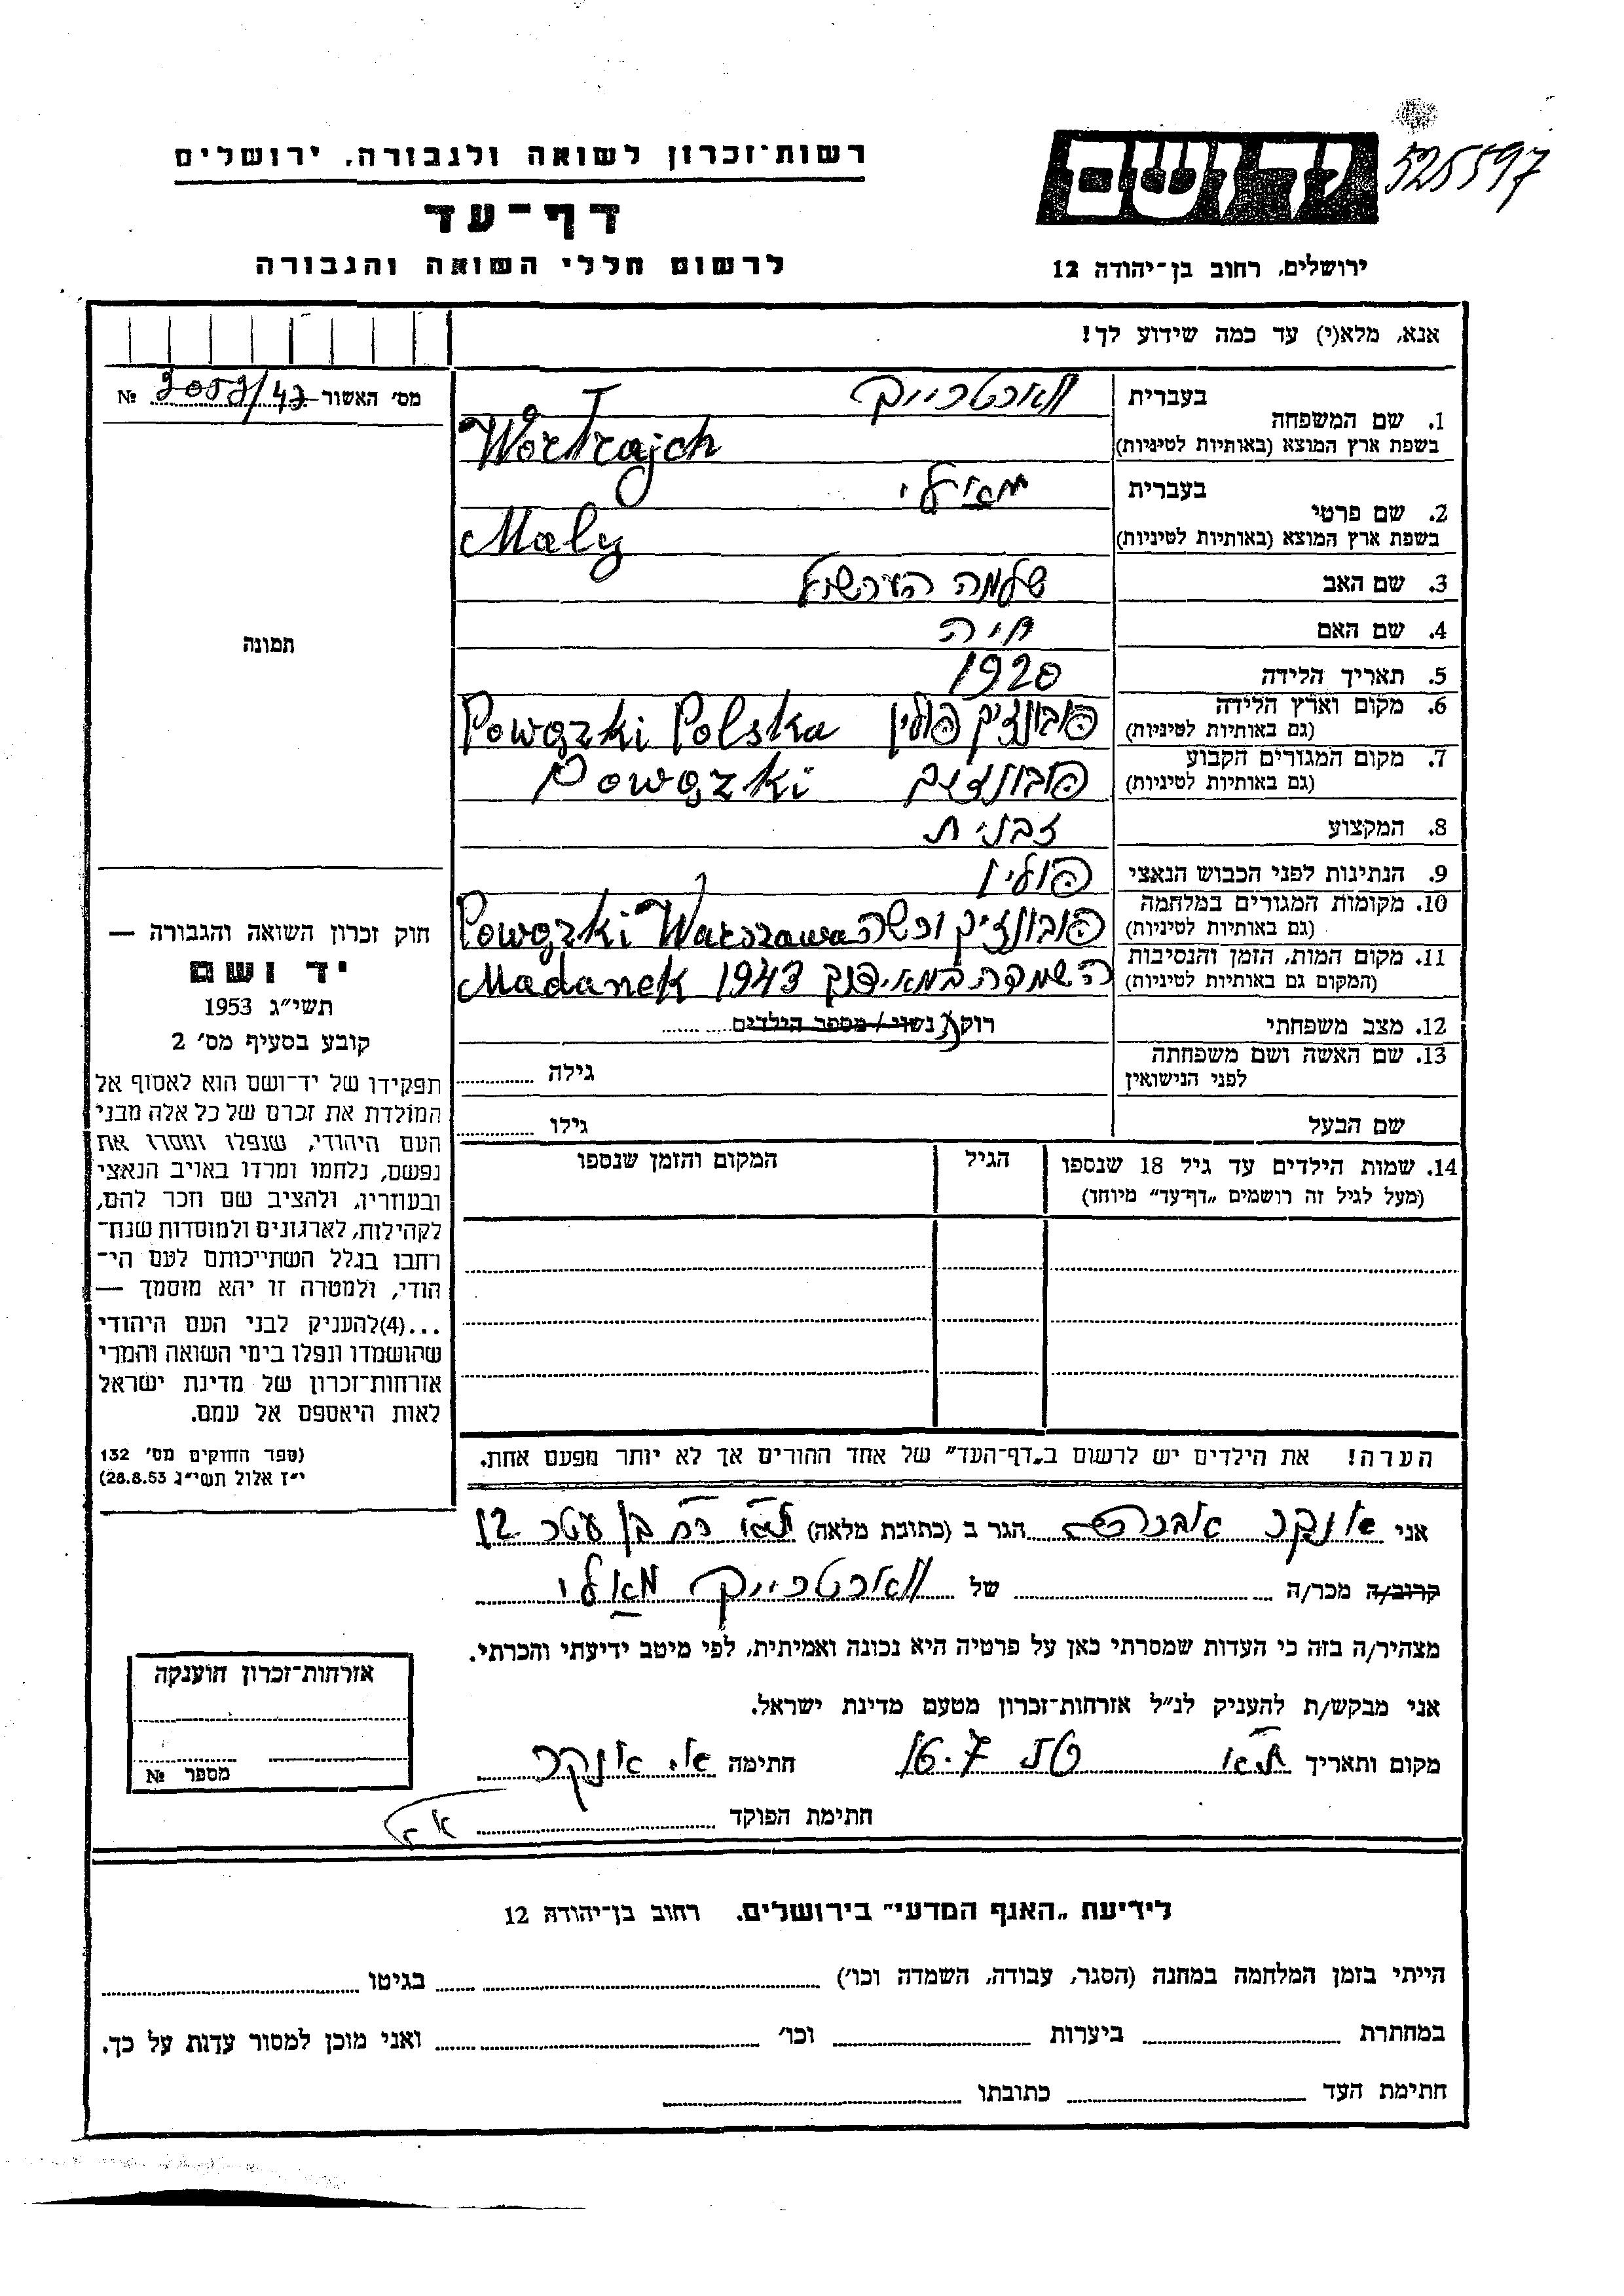 רשות־זכרון לשואה ולגבורה, ירושלים
דף־עד
לרשום חללי השואה והגבורה
יד ושם
525597
ירושלים, רחוב בן־יהודה 12
אנא, מלא(י) עד כמה שידוע לך!
מס׳ האשור №
1. שם המשפחה
בעברית ווארטרייך
בשפת ארץ המוצא (באותיות לטיניות) Wortrajch
2. שם פרטי
בעברית
בשפת ארץ המוצא (באותיות לטיניות) Maly
3. שם האב שלמה הערשל
4. שם האם חיה
5. תאריך הלידה 1920
6. מקום וארץ הלידה
(גם באותיות לטיניות) פובונזקי פולין Powązki Polska
7. מקום המגורים הקבוע
(גם באותיות לטיניות) פובונזקי Powązki
8. המקצוע זבנית
9. הנתינות לפני הכבוש הנאצי פולין
10. מקומות המגורים במלחמה
(גם באותיות לטיניות) פובונזקי ורשה Powązki Warszawa
11. מקום המות, הזמן והנסיבות
(המקום גם באותיות לטיניות) השמדה במאידנק 1943 Madanek
12. מצב משפחתי רוק/ה נשוי/מספר הילדים
13. שם האשה ושם משפחתה
לפני הנישואין גילה
שם הבעל גילו
14. שמות הילדים עד גיל 18 שנספו הגיל המקום והזמן שנספו
(מעל לגיל זה רושמים „דף־עד” מיוחד)
הערה! את הילדים יש לרשום ב„דף־העד” של אחד ההורים אך לא יותר מפעם אחת.
תמונה
חוק זכרון השואה והגבורה —
יד ושם
תשי״ג 1953
קובע בסעיף מס׳ 2
תפקידו של יד־ושם הוא לאסוף אל
המולדת את זכרם של כל אלה מבני
העם היהודי, שנפלו ומסרו את
נפשם, נלחמו ומרדו באויב הנאצי
ובעוזריו, ולהציב שם וזכר להם,
לקהילות, לארגונים ולמוסדות שנח־
רחבו בגלל השתייכותם לעם הי־
הודי, ולמטרה זו יהא מוסמך —
...(4)להעניק לבני העם היהודי
שהושמדו ונפלו בימי השואה והמרי
אזרחות־זכרון של מדינת ישראל
לאות היאספם אל עמם.
(ספר החוקים מס׳ 132
י״ז אלול תשי״ג 28.8.53)
אני אונקר הגר ב (כתובת מלאה) ת״א רח בן עטר 12
קרוב/ה מכר/ה של ווארטרייך
מצהיר/ה בזה כי העדות שמסרתי כאן על פרטיה היא נכונה ואמיתית, לפי מיטב ידיעתי והכרתי.
אני מבקש/ת להעניק לנ״ל אזרחות־זכרון מטעם מדינת ישראל.
מקום ותאריך ת״א 16.7 חתימה א. אונקר
חתימת הפוקד
אזרחות־זכרון הוענקה
מספר №
לידיעת „האגף המדעי” בירושלים, רחוב בן־יהודה 12
הייתי בזמן המלחמה במחנה (הסגר, עבודה, השמדה וכו׳) בגיטו
במחתרת ביערות וכו׳ ואני מוכן למסור עדות על כך.
חתימת העד כתובתו